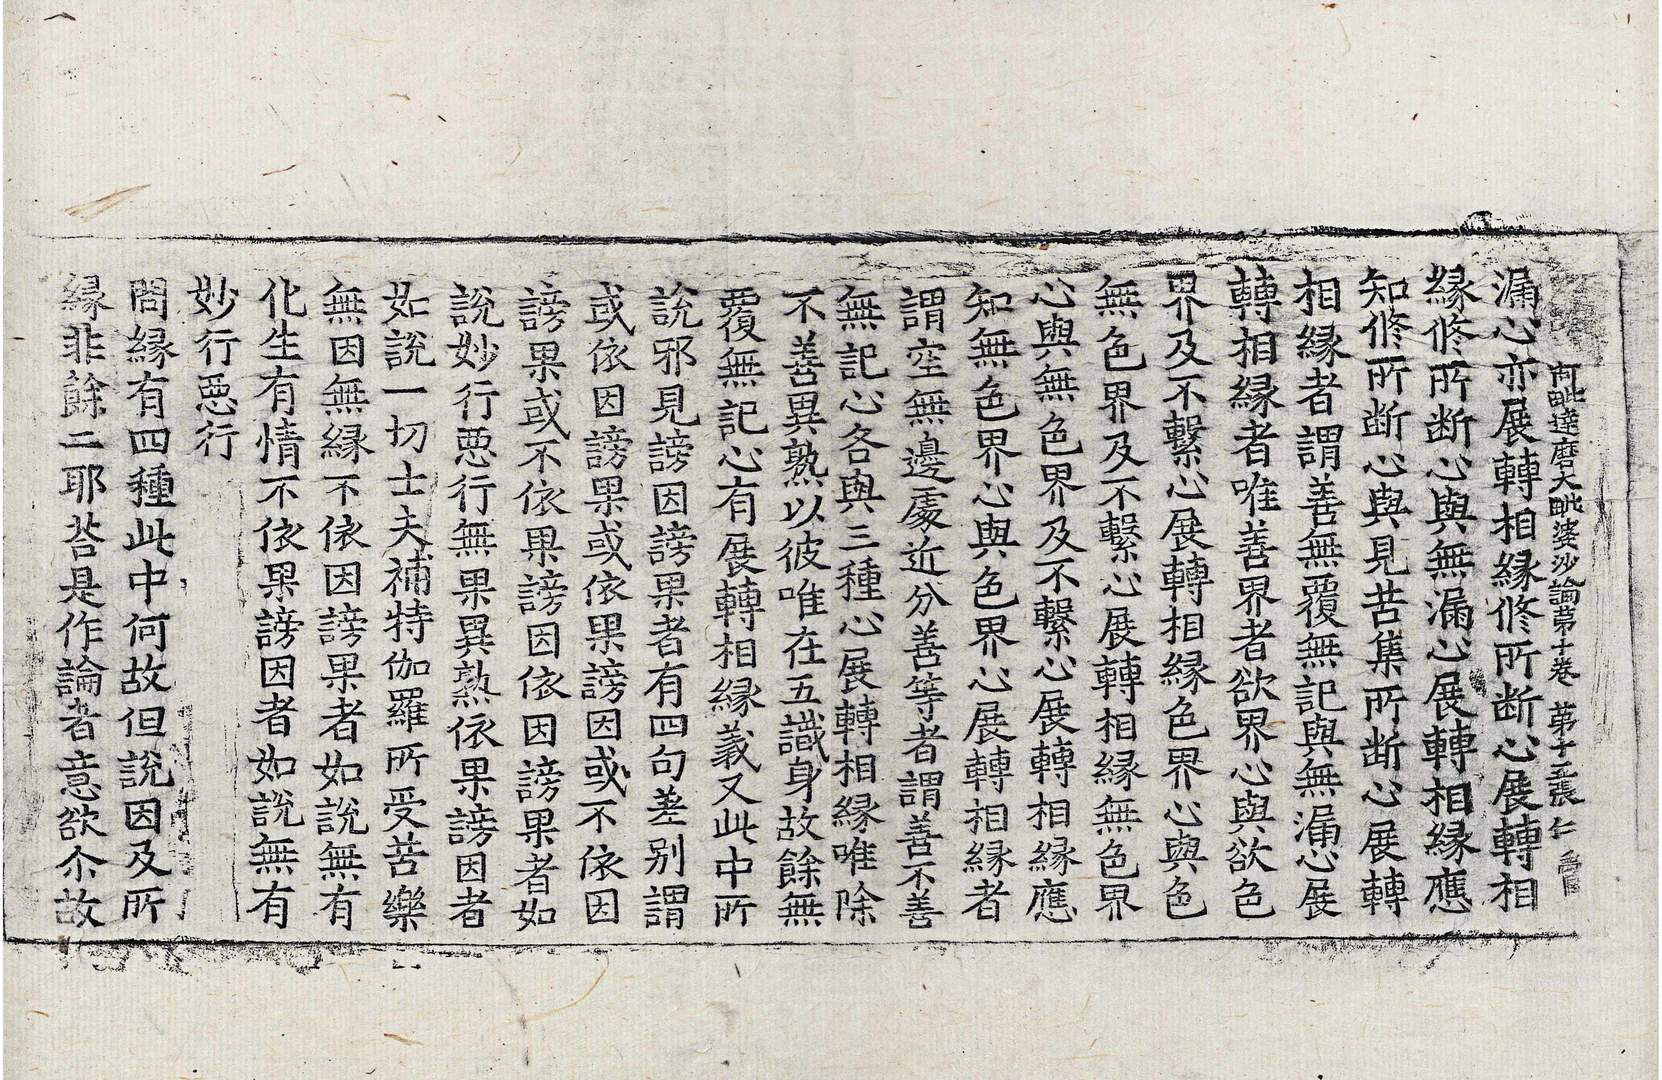 阿毗達磨大毗婆沙論第十卷 第十二張 仁
漏心亦展轉相緣修所断心展轉相
緣修所断心與無漏心展轉相緣應
知修所断心與見苦集所断心展轉
相緣者謂善無覆無記與無漏心展
轉相緣者唯善界者欲界心與欲色
界及不繫心展轉相緣色界心與色
無色界及不繫心展轉相緣無色界
心與無色界及不繫心展轉相緣應
知無色界心與色界心展轉相緣者
謂空無邊處近分善等者謂善不善
無記心各與三種心展轉相緣唯除
不善異熟以彼唯在五識身故餘無
覆無記心有展轉相緣義又此中所
說邪見謗因謗果者有四句差别謂
或依因謗果或依果謗因或不依因
謗果或不依果謗因依因謗果者如
說妙行惡行無果異熟依果謗因者
如說一切士夫補特伽羅所受苦樂
無因無緣不依因謗果者如說無有
化生有情不依果謗因者如說無有
妙行惡行
問緣有四種此中何故但說因及所
緣非餘二耶荅是作論者意欲尒故